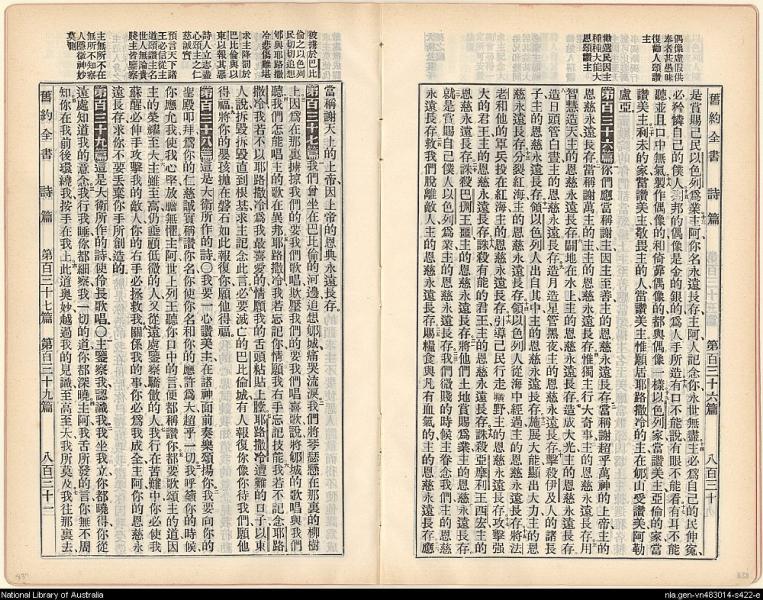 舊約全書　詩篇　第百三十六篇　八百三十
偶像虛假供奉者甚愚昧
復勸人頌讚主
勸選民因主種種大恩大恩頌讚主
是當賜己民以色列爲業主阿你名永遠長存主阿人記念你永世無盡主必爲自己的民伸冤
必矜憐自己的僕人異邦的偶像是金的銀的爲人手所造有口不能說有眼不能看有耳不能
聽並且口中無氣製作偶像的和倚靠偶像的都與偶像一樣以色列家當讚美主亞倫的家當
讚美主利未的家當讚美主敬畏主的人當讚美主惟願居耶路撒冷的主在郇山受讚美阿勒
盧亞
第百三十六篇你們應當稱謝主因主至善主的恩慈永遠長存當稱謝超乎萬神的上帝主的
恩慈永遠長存當稱謝萬主的主主的恩慈永遠長存惟獨主行大奇事主的恩慈永遠長存用
智慧造天主的恩慈永遠長存鋪地在水上主的恩慈永遠長存造成大光主的恩慈永遠長存
造日頭管白晝主的恩慈永遠長存造月造星管黑夜主的恩慈永遠長存擊殺伊及人的諸長
子主的恩慈永遠長存領以色列人出自其中主的恩慈永遠長存施展大能顯出大力主的恩
慈永遠長存分裂紅海主的恩慈永遠長存領以色列人從海中經過主的恩慈永遠長存將法
老和他的軍兵投在紅海主的恩慈永遠長存引導己民行走曠野主的恩慈永遠長存攻擊強
大的君王主的恩慈永遠長存誅殺有能的君王主的恩慈永遠長存誅殺亞摩利王西宏主的
恩慈永遠長存誅殺巴珊王噩主的恩慈永遠長存將他們土地賞賜爲業主的恩慈永遠長存
就是當賜自己僕人以色列爲業主的恩慈永遠長存我們微賤的時候主眷念我們主的恩慈
永遠長存救我們脫離敵人主的恩慈永遠長存賜糧食與凡有血氣的主的恩慈永遠長存應
被擄於巴比倫之以色列民切切追想郇與耶路撒冷悲傷難堪
求主降罰於巴比倫與以東以報其惡
詩人立志盡心頌主之仁慈誠實
預言天下諸王必信從主道頌讚主名
世人無論貴賤主皆鑒察
主無所不在無所不知察人隱微神妙莫測
當稱謝天上的上帝因上帝的恩典永遠長存
第百三十七篇我們曾坐在巴比倫的河邊追想郇城痛哭流淚我們將琴瑟懸在那裏的柳樹
上因爲在那裏擄掠我們的要我們歌唱欺壓我們的要我們唱喜歌說將郇城的歌唱與我們
聽我們怎能唱主的歌在異邦耶路撒冷我若忘記你情願我右手忘記技能我若不記念耶路
撒冷我若不以耶路撒冷爲我最喜愛的情願我的舌頭粘貼上膛耶路撒冷遭難的日子以東
人說拆毀拆毀直到根基求主記念此言必要滅亡的巴比倫城有人報復你像你待我們願他
得福將你的嬰孩拋在磐石如此報復你願他得福
第百三十八篇這是大衛所作的詩〇我要一心讚美主在諸神面前奏樂頌揚你我要向你的
聖殿叩拜爲你的仁慈誠實稱讚你名你使你名和你的應許爲大超乎一切我呼籲你的時候
你應允我使我心氣放膽無懼主阿世上列王聽你口中的言便都稱讚你都要歌頌主的道因
主的榮耀至大主雖至高仍垂顧低微的人又從遠處鑒察驕傲的人我行在苦難中你必使我
蘇醒必伸手攻擊我的敵人你的右手必拯救我關係我的事你必爲我成全主阿你的恩慈永
遠長存求你不要丟棄你手所創造的
第百三十九篇這是大衛所作的詩使伶長歌唱〇主鑒察我認識我我坐我立你都曉得你從
遠處知道我的意念我行我睡你都細察我一切的道你都深曉主阿我舌所發的言你無不周
知你在我前後環繞我按手在我上此道奧妙越過我的見識至高至大我所莫及我往那裏去
舊約全書　詩篇　第百三十七篇　第百三十九篇　八百三十一
National Library of Australia
nla.gen-vn483014-s422-e